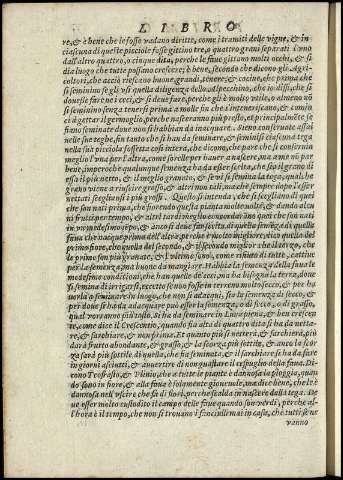 LIBRO
re, & è bene che le fosse vadano diritte, come i tramiti delle vigne, & in
ciascuna di queste picciole fosse gittino tre, o quattro grani separati l'uno
dall'altro quattro, o cinque dita, perche le faue gittano molti occhi, & si
dia luogo che tutte possano crescere; è bene, secondo che dicono gli Agri-
coltori, che acciò riescano buone, grandi, tenere, & cocine, che prima che
si seminino se gli usi quella diligenza dello che io dissi, che si
douesse fare ne i ceci, & si deue fare, perche gli è molto utile, o almeno nõ
si seminino senza tenersi prima a molle fin che s'inteneriscano, & comin
ci à gettar il germoglio, perche nasceranno più presto, et principalmẽte se
fiano seminate doue non si habbian da inacquare. Steno conseruate assai
nelle sue teghe, sin tanto che si han da seminare, & seminisi ciascuna tega
nella sua picciola fossetta così intera, che dicono, che pare che si conserui
meglio l'una per l'altra, come sorelle per hauer a nascere, ma a me nõ par
bene, imperoche qualunque semenza ha da esser scielta, che sepil grano di
essa il più netto, & il meglio granato, & se si semina la tega, qualche
grano viene a riuscire grosso, & altri non tali, ma che sempre dopo l'esser
nettati scegliansi i più grossi. Questo s'intenda, che si scegliano di quei
che sun nati prima, che fiorendo questa pianta molte uolte, & dando alcu
ni frutti per tempo, & altri tardi meglio concordariano quei che sun nati
in un medesimo tẽpo, & anco si deue far scielta di quelle semẽze di quella
faua che nacque prima dell'altre perche è molto migliore, cioè quella del
primo fiore, che quella del secondo, & il secondo miglior che il terzo, che
le prime son più granate, & l'ultimo sono, come rifiuto di tutte, cattiue
per la semenza, ma buone da mangiare. Habbia la semenza della faua le
medesime condittioni, che han quelle de i ceci, ma bisogna la terra, doue
si semina di irrigarsi, eccetto se non fosse in terreno molto secco, & per ha
uerla a seminare in luogo, che non si adacqui, sia la semenza di secco, &
per doue si ha da adacquare può esser la semenza, o di secco, o di grasso,
qual vorranno più tosto. Si ha da seminare in Luna piena, & ben crescen
te, come dice il Crescentio, quando sia alta di quattro dita si ha da netta-
re, & sarchiare, & non prima. Et quanto più si netterà, & sarchierà, più
darà frutto abondante, & grasso, & la scorza più sottile, & anco la scor
za sarà più sottile di quella, che sia seminata, & il sarchiare si ha da fare
in giorni asciutti, & auuertire di non guastare il cespuglio della faua. Di-
cono Teofrasto, & Plinio, che a tutte le piante è dannosa la pioggia, quan
do sono in fiore, & alla faua è solamente gioueuole, ma dice bene, che le è
dannosa nell'uscire che fà di fiori, perche scalda in nascere dalla tega. De
ue esser molto custodito il campo delle faue quando son verdi, perche al-
l'hora è il tempo, che non si trouano i fanciulli mai in casa, che tutti se ne
vanno